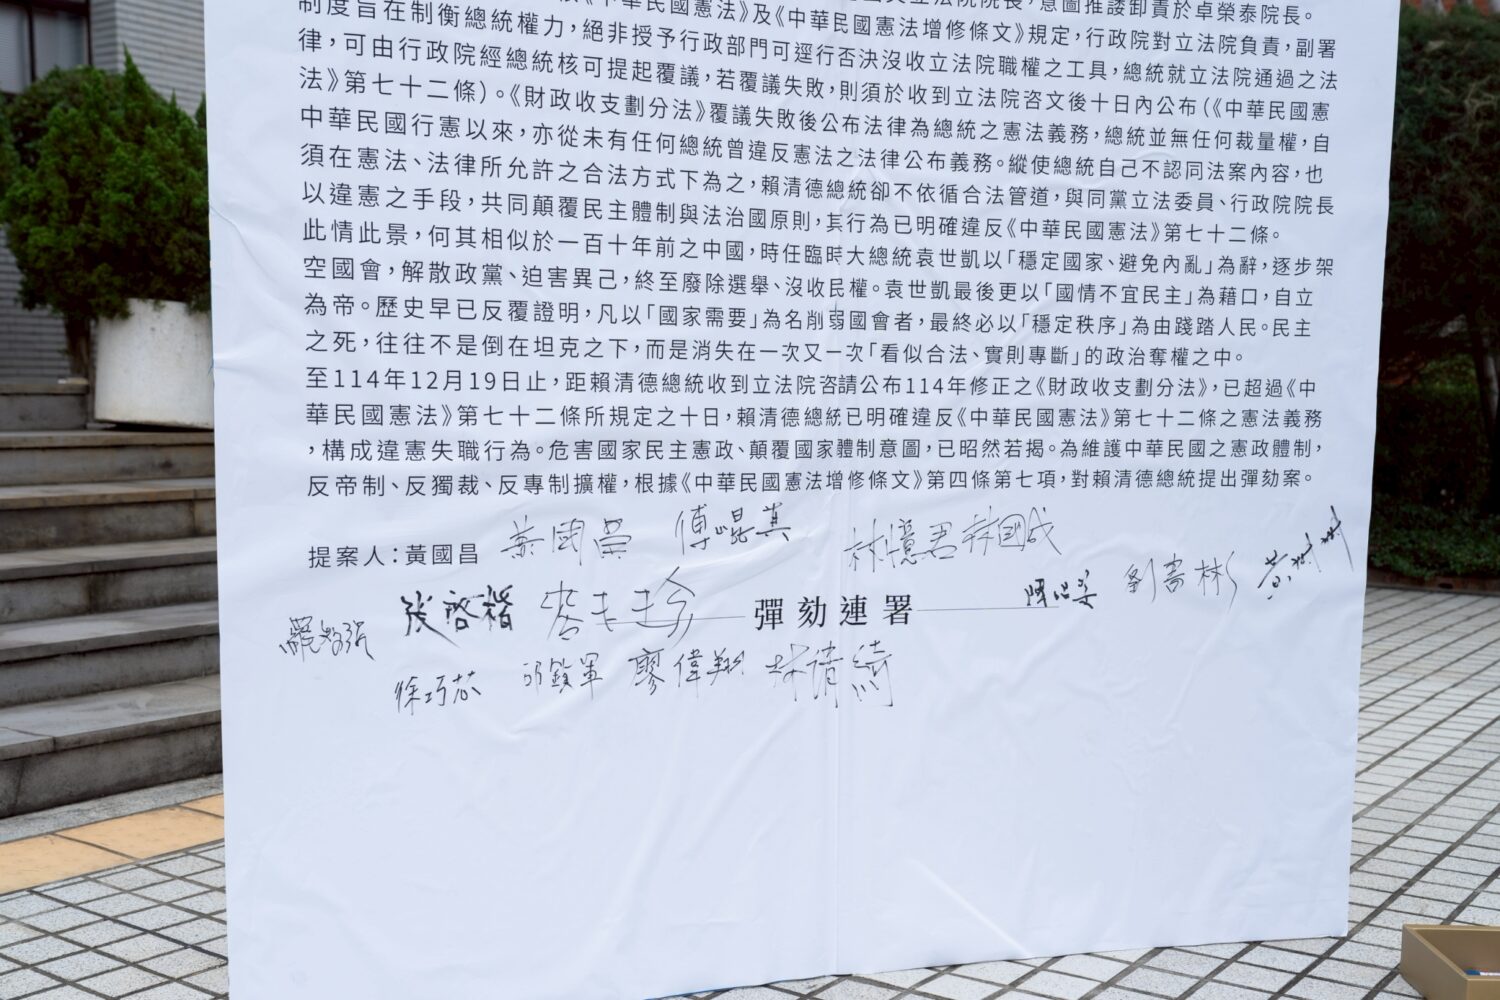 《中華民國憲法》及《中華民國憲法增修條文》規定，行政院對立法院負責，副署
立法院院長，意圖推諉卸責於卓榮泰院長。
制度旨在制衡總統權力，絕非授予行政部門可逕行否決沒收立法院職權之工具，總統就立法院通過之法
律，可由行政院經總統核可提起覆議，若覆議失敗，則須於收到立法院咨文後十日內公布（《中華民國憲
法》第七十二條）。《財政收支劃分法》覆議失敗後公布法律為總統之憲法義務，總統並無任何裁量權，自
中華民國行憲以來，亦從未有任何總統曾違反憲法之法律公布義務。縱使總統自己不認同法案內容，也
須在憲法、法律所允許之合法方式下為之，賴清德總統卻不依循合法管道，與同黨立法委員、行政院院長
以違憲之手段，共同顛覆民主體制與法治國原則，其行為已明確違反《中華民國憲法》第七十二條。
此情此景，何其相似於一百十年前之中國，時任臨時大總統袁世凱以「穩定國家、避免內亂」為辭，逐步架
空國會，解散政黨、迫害異己，終至廢除選舉、沒收民權。袁世凱最後更以「國情不宜民主」為藉口，自立
為帝。歷史早已反覆證明，凡以「國家需要」為名削弱國會者，最終必以「穩定秩序」為由踐踏人民。民主
之死，往往不是倒在坦克之下，而是消失在一次又一次「看似合法、實則專斷」的政治奪權之中。
至114年12月19日止，距賴清德總統收到立法院咨請公布114年修正之《財政收支劃分法》，已超過《中
華民國憲法》第七十二條所規定之十日，賴清德總統已明確違反《中華民國憲法》第七十二條之憲法義務
，構成違憲失職行為。危害國家民主憲政、顛覆國家體制意圖，已昭然若揭。為維護中華民國之憲政體制，
反帝制、反獨裁、反專制擴權，根據《中華民國憲法增修條文》第四條第七項，對賴清德總統提出彈劾案。
提案人：黃國昌 黃國榮 傅崐萁 林憶君 林國成
張啓楷 麥玉珍 彈劾連署 陳昭姿 劉書彬
羅智強
徐巧芯 邱鎮軍 廖偉翔 林倩綺